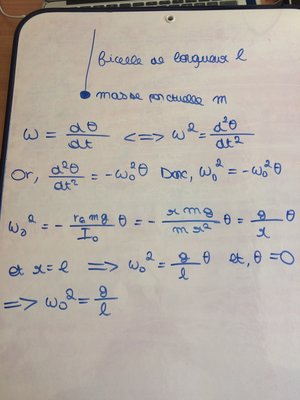 ficelle de longueur l
masse ponctuelle m
ω = dθ/dt <=> ω² = d²θ/dt²
Or, d²θ/dt² = -ω₀²θ Donc, ω₀² = -ω₀²θ
ω₀² = - r₀mg/I₀ θ = - rmg/mr² θ = g/r θ
et r = l => ω₀² = g/l θ et, θ = 0
=> ω₀² = g/l